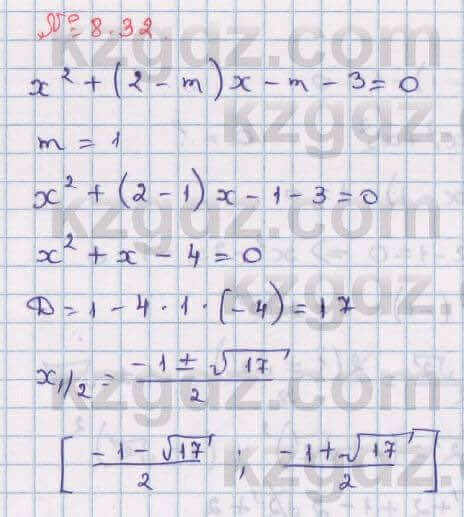 № 8.32.
x² + (2 - m) x - m - 3 = 0
m = 1
x² + (2 - 1) x - 1 - 3 = 0
x² + x - 4 = 0
D = 1 - 4 · 1 · (-4) = 17
x₁/₂ = (-1 ± √17)/2
[(-1 - √17)/2 ; (-1 + √17)/2]
kzgdz.com
kzgdz.com
kzgdz.com
kzgdz.com
kzgdz.com
kzgdz.com